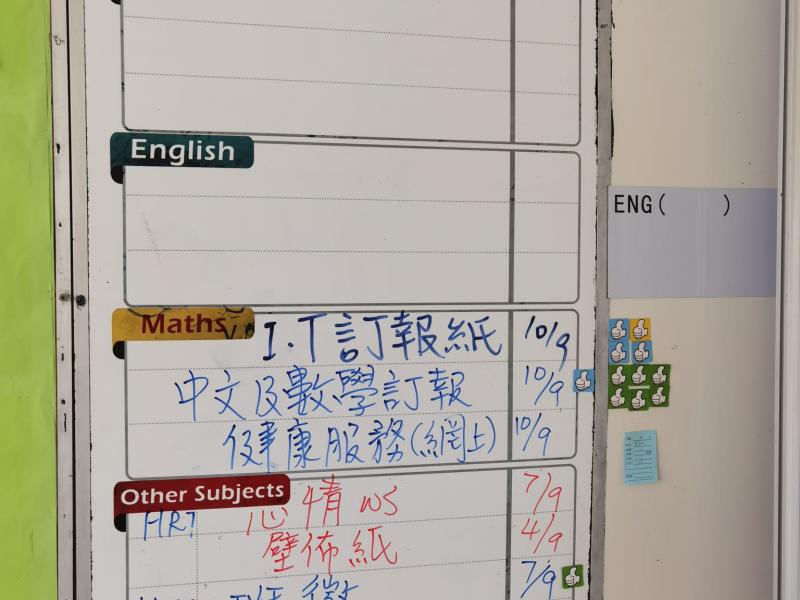 English
ENG( )
Maths
I.T訂報紙 10/9
中文及數學訂報 10/9
健康服務(網上) 10/9
Other Subjects
HRT 心情 WS 7/9
壁佈紙 4/9
7/9